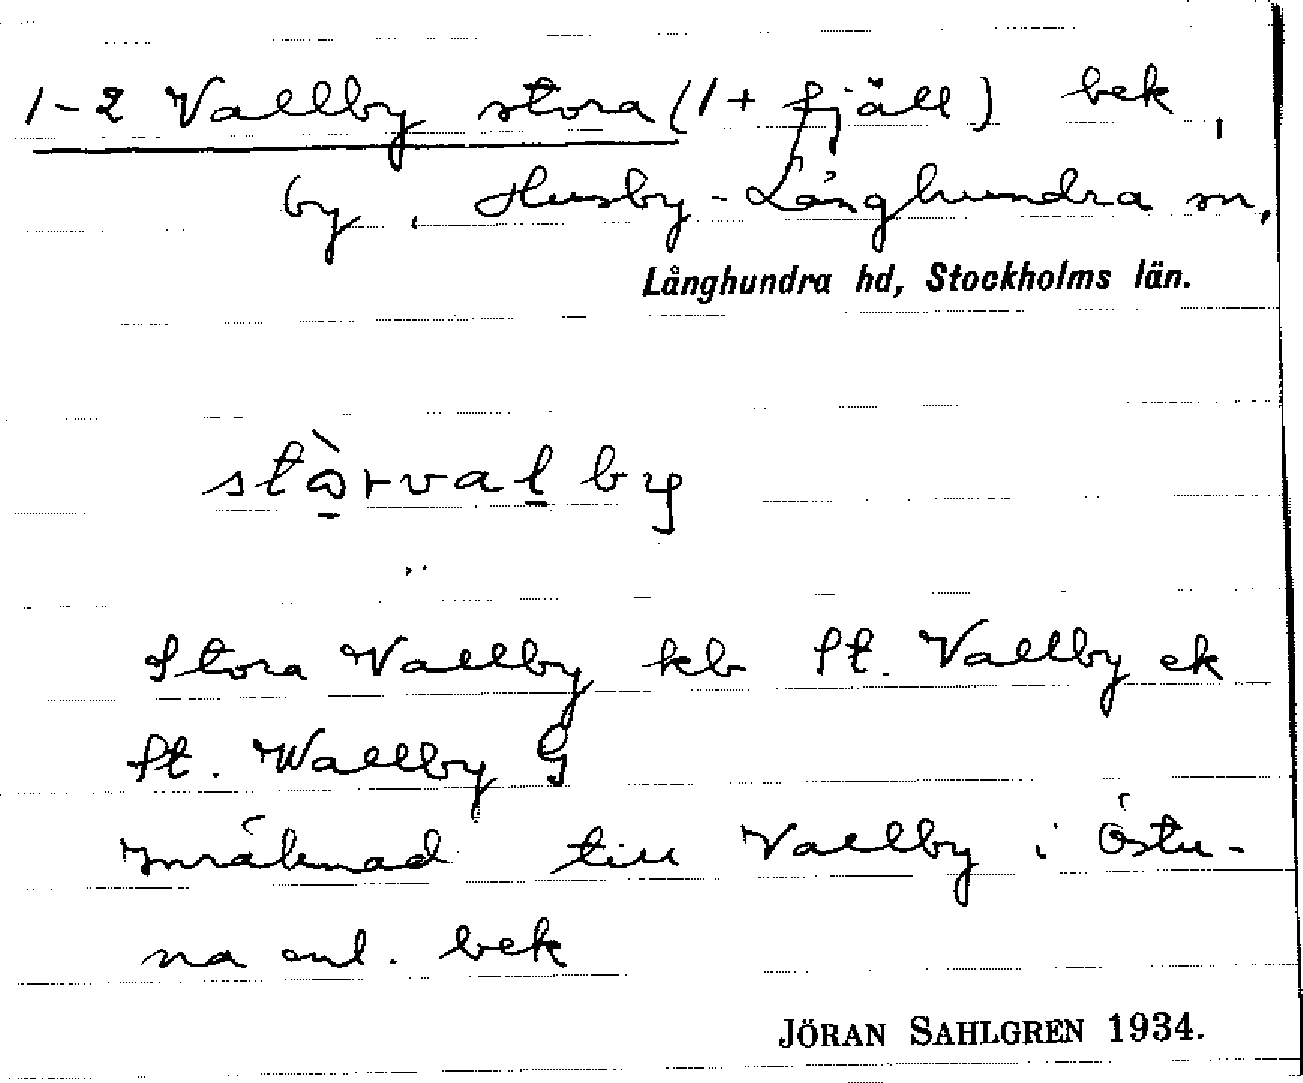 1-2 Vallby stora (1 + fjäll) bek,
by, Husby-Långhundra sn,
Långhundra hd, Stockholms län.
stòrvalby
Stora Vallby kb St. Vallby ek
St. Wallby G
Inräknad till Vallby i Östu-
na enl. bek
JÖRAN SAHLGREN 1934.